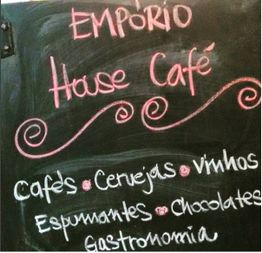 EMPÓRIO
House Café
Cafés • Cervejas • Vinhos
Espumantes • Chocolates
Gastronomia